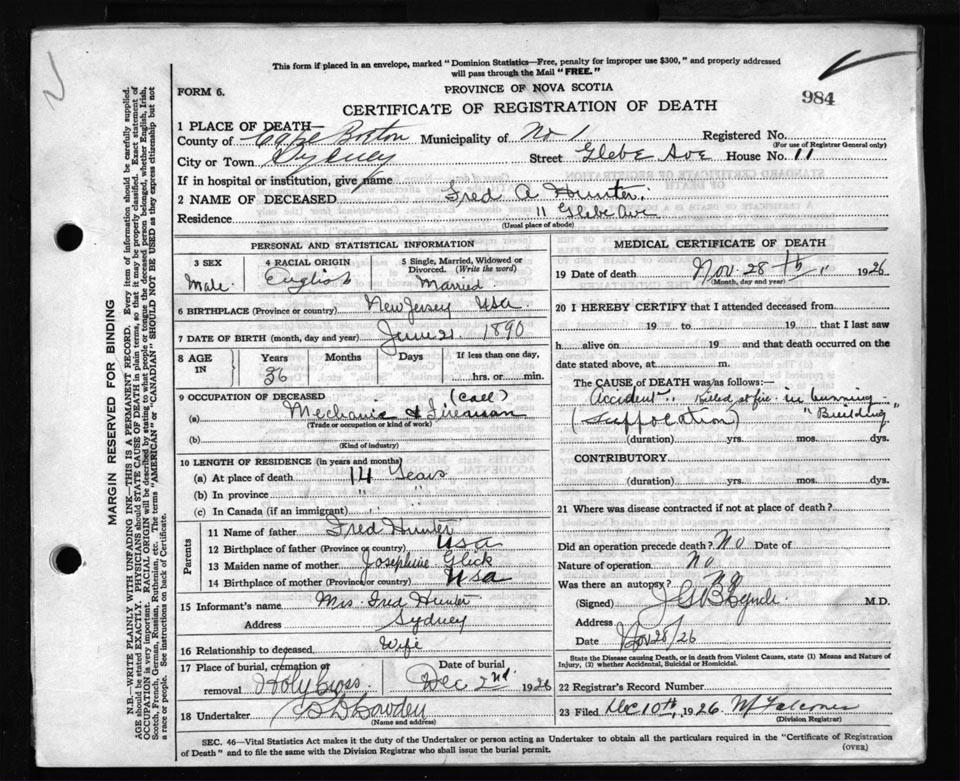 This form if placed in an envelope, marked "Dominion Statistics—Free, penalty for improper use $300," and properly addressed
will pass through the Mail "FREE."
FORM 6.
PROVINCE OF NOVA SCOTIA
984
CERTIFICATE OF REGISTRATION OF DEATH
1 PLACE OF DEATH—
County of Cape Breton Municipality of No 1 Registered No.
(For use of Registrar General only)
City or Town Sydney Street Glebe Ave House No. 11
If in hospital or institution, give name
2 NAME OF DECEASED Fred A Hunter.
Residence 11 Glebe Ave
(Usual place of abode)
PERSONAL AND STATISTICAL INFORMATION
3 SEX 4 RACIAL ORIGIN 5 Single, Married, Widowed or
Divorced. (Write the word)
Male. English Married
6 BIRTHPLACE (Province or country) New Jersey USA
7 DATE OF BIRTH (month, day and year) June 21 1890
8 AGE IN Years Months Days If less than one day,
36 hrs. or min.
9 OCCUPATION OF DECEASED (Call)
(a) Mechanic & Fireman
(Trade or occupation or kind of work)
(b)
(Kind of industry)
10 LENGTH OF RESIDENCE (in years and months)
(a) At place of death 14 Years
(b) In province " "
(c) In Canada (if an immigrant)
Parents
11 Name of father Fred Hunter
12 Birthplace of father (Province or country) USA
13 Maiden name of mother Josephine Glick
14 Birthplace of mother (Province or country) USA
15 Informant's name Mrs. Fred Hunter
Address Sydney
16 Relationship to deceased Wife
17 Place of burial, cremation or Date of burial
removal Holy Cross Dec 2nd. 1926
18 Undertaker
(Name and address)
MEDICAL CERTIFICATE OF DEATH
19 Date of death Nov. 28th 1926
(Month, day and year)
20 I HEREBY CERTIFY that I attended deceased from
19 to 19, that I last saw
h alive on 19 and that death occurred on the
date stated above, at m.
The CAUSE OF DEATH was as follows:—
Accident. Killed at fire in burning
(Suffocation) "Building"
(duration) yrs. mos. dys.
CONTRIBUTORY
(duration) yrs. mos. dys.
21 Where was disease contracted if not at place of death?
Did an operation precede death? No Date of
Nature of operation No
Was there an autopsy? No
(Signed) M.D.
Address
Date Nov 28/26
State the Disease causing Death, or in death from Violent Causes, state (1) Means and Nature of
Injury, (2) whether Accidental, Suicidal or Homicidal.
22 Registrar's Record Number
23 Filed Dec 10th, 1926
(Division Registrar)
SEC. 46—Vital Statistics Act makes it the duty of the Undertaker or person acting as Undertaker to obtain all the particulars required in the "Certificate of Registration
of Death" and to file the same with the Division Registrar who shall issue the burial permit. (OVER)
MARGIN RESERVED FOR BINDING
N.B.—WRITE PLAINLY WITH UNFADING INK—THIS IS A PERMANENT RECORD. Every item of information should be carefully supplied.
AGE should be stated EXACTLY. PHYSICIANS should STATE CAUSE OF DEATH in plain terms, so that it may be properly classified. Exact statement of
OCCUPATION is very important. RACIAL ORIGIN will be described by stating to what people or tongue the deceased person belonged, whether English, Irish,
Scotch, French, German, Russian, Ruthenian, etc. The terms "AMERICAN" or "CANADIAN" SHOULD NOT BE USED as they express citizenship but not
a race or people. See instructions on back of Certificate.